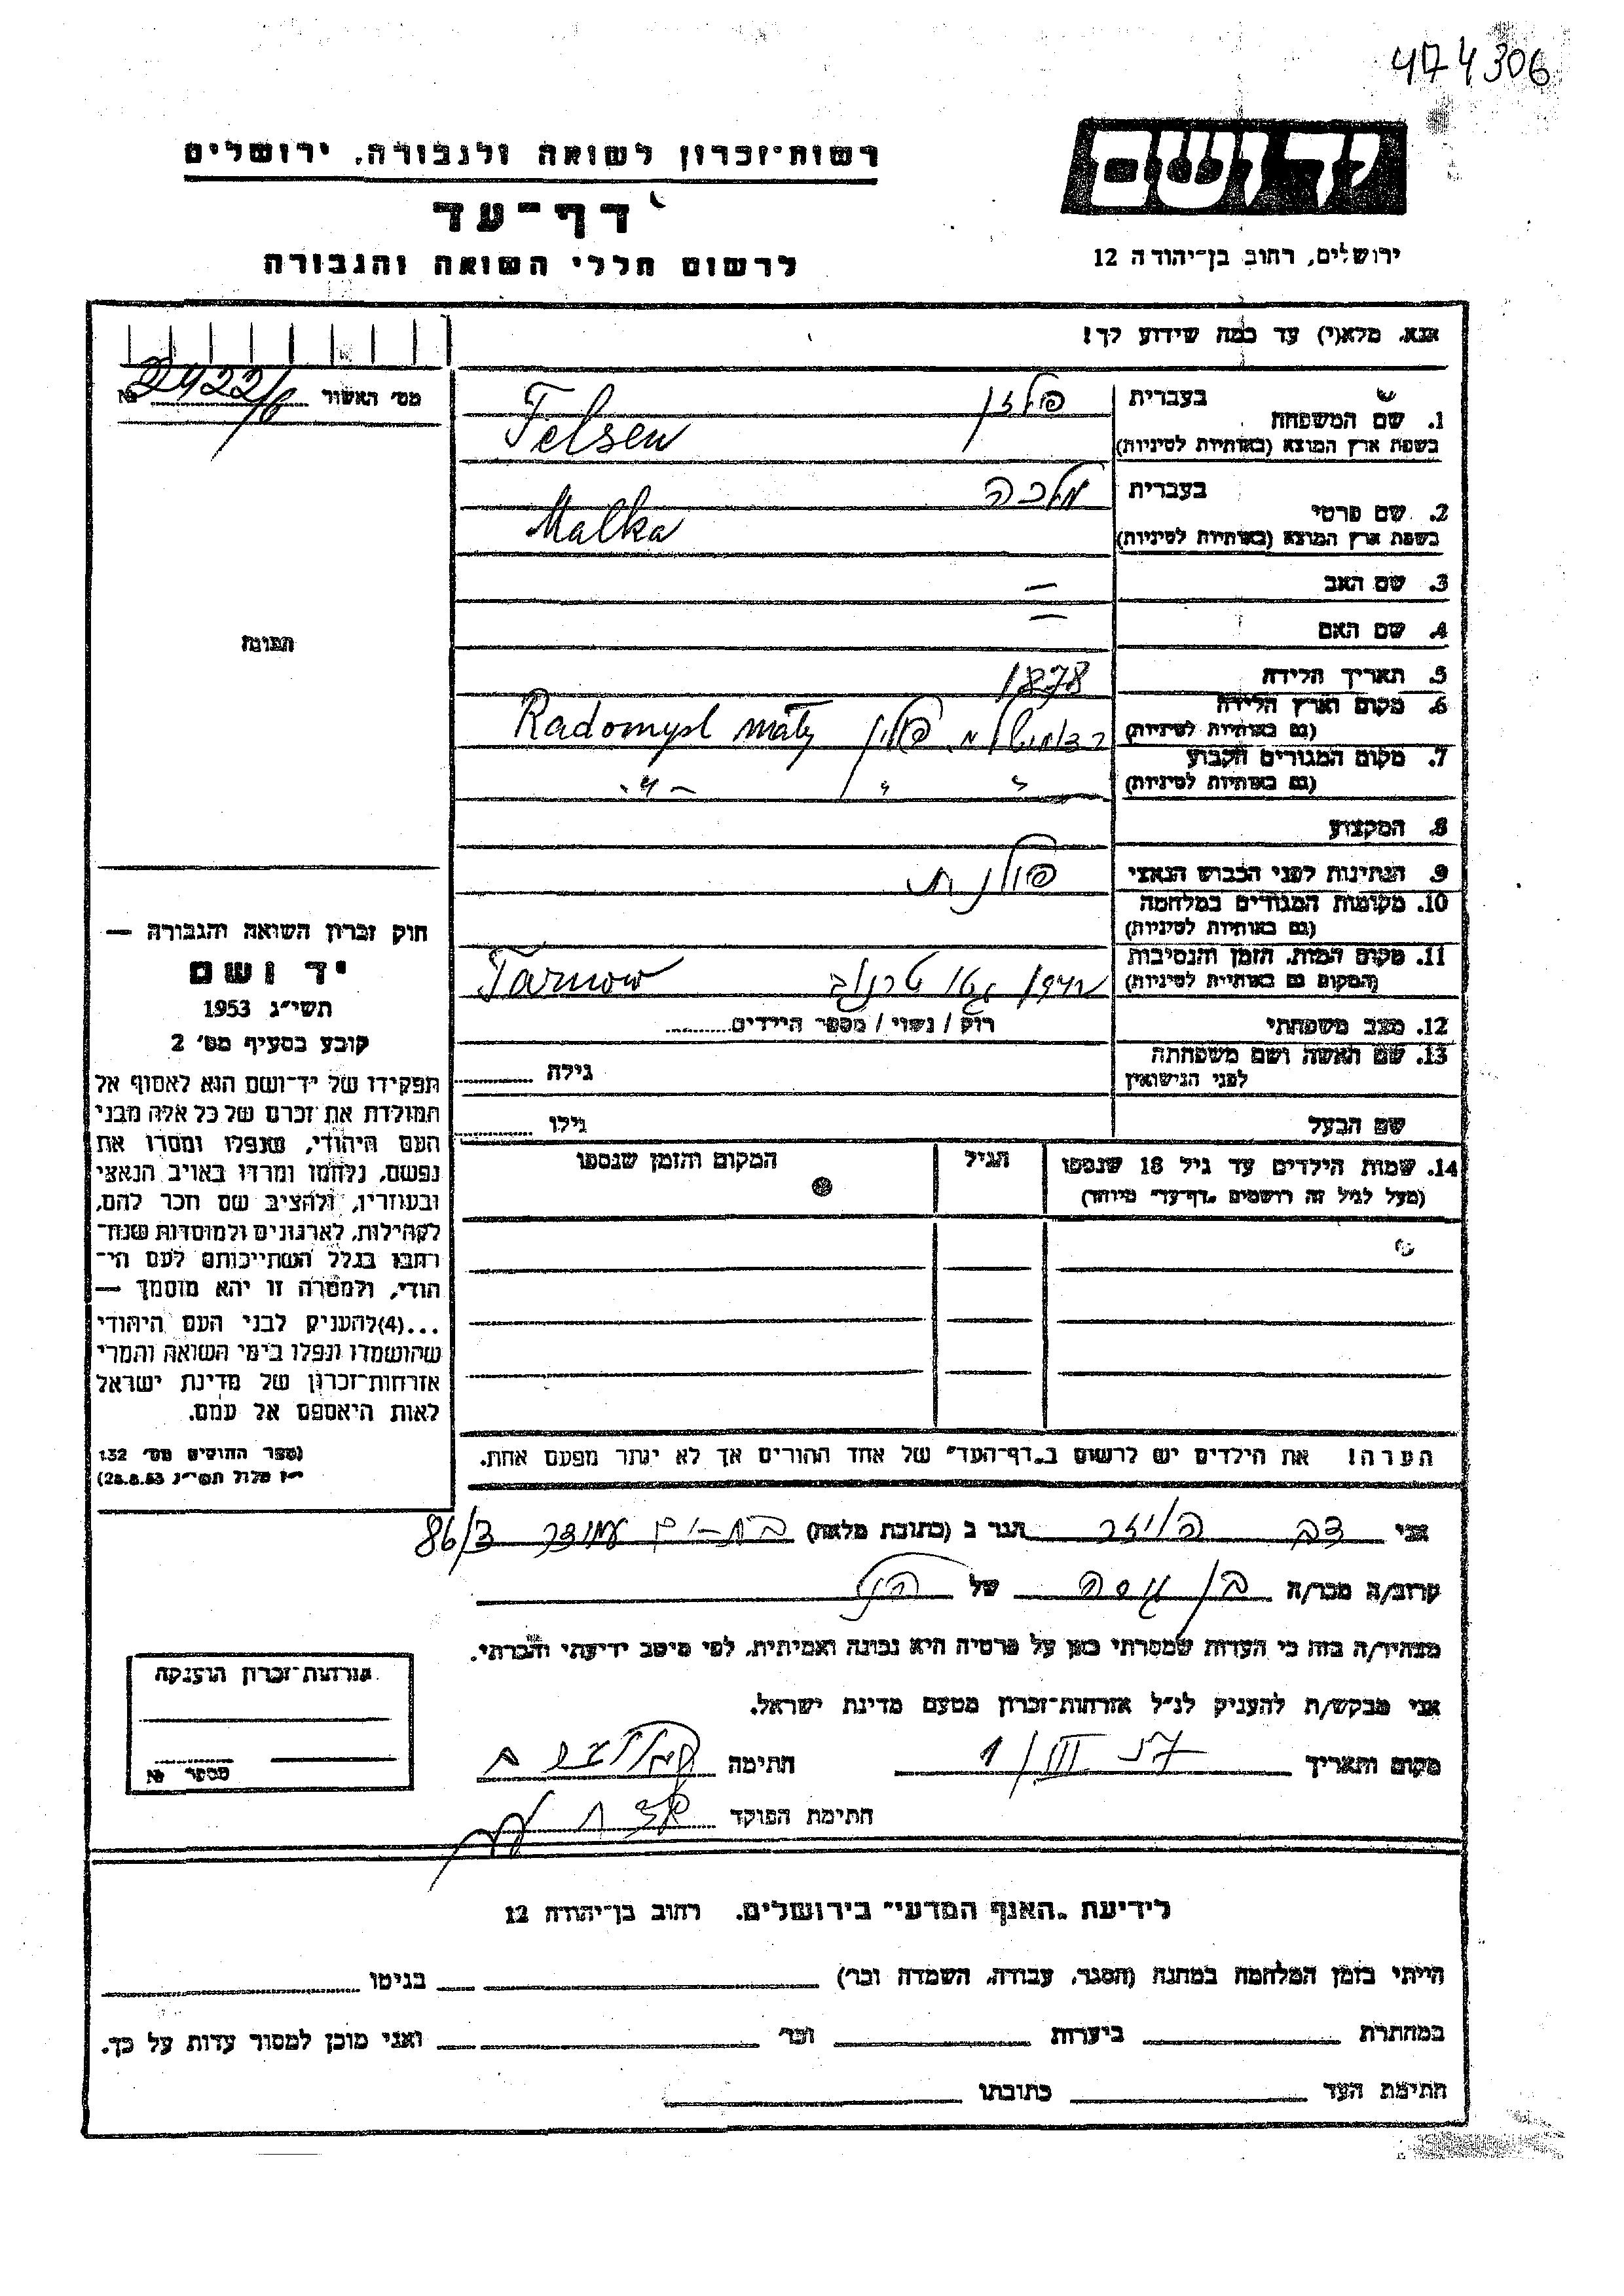 474306
יד ושם
רשות־זכרון לשואה ולגבורה, ירושלים
דף־עד
לרשום חללי השואה והגבורה
ירושלים, רחוב בן־יהודה 12
אנא, מלא(י) עד כמה שידוע לך!
מס׳ האשור 2422/6 №
1. שם המשפחה
בעברית פלזן
בשפת ארץ המוצא (באותיות לטיניות) Felsen
2. שם פרטי
בעברית מלכה
בשפת ארץ המוצא (באותיות לטיניות) Malka
3. שם האב —
4. שם האם —
5. תאריך הלידה 1878
6. מקום וארץ הלידה
(גם באותיות לטיניות) פולין Radomysl mały
7. מקום המגורים הקבוע
(גם באותיות לטיניות) " " — " —
8. המקצוע
9. הנתינות לפני הכבוש הנאצי פולנית
10. מקומות המגורים במלחמה
(גם באותיות לטיניות)
11. מקום המות, הזמן והנסיבות
(המקום גם באותיות לטיניות) גטו טרנוב Tarnow
12. מצב משפחתי רוק / נשוי / מספר הילדים
13. שם האשה ושם משפחתה
לפני הנישואין גילה
שם הבעל גילו
14. שמות הילדים עד גיל 18 שנספו
(מעל לגיל זה רושמים „דף־עד״ מיוחד)
הגיל
המקום והזמן שנספו
הערה! את הילדים יש לרשום ב„דף־העד״ של אחד ההורים אך לא יותר מפעם אחת.
תמונה
חוק זכרון השואה והגבורה —
יד ושם
תשי״ג 1953
קובע בסעיף מס׳ 2
תפקידו של יד־ושם הוא לאסוף אל
המולדת את זכרם של כל אלה מבני
העם היהודי, שנפלו ומסרו את
נפשם, נלחמו ומרדו באויב הנאצי
ובעוזריו, ולהציב שם וזכר להם,
לקהילות, לארגונים ולמוסדות שנח־
רבו בגלל השתייכותם לעם הי־
הודי, ולמטרה זו יהא מוסמך —
...(4)להעניק לבני העם היהודי
שהושמדו ונפלו בימי השואה והמרי
אזרחות־זכרון של מדינת ישראל
לאות היאספם אל עמם.
(ספר החוקים מס׳ 132
י״ז אלול תשי״ג 28.8.53)
אני דב הגר ב (כתובת מלאה) בת־ים עמידר 86/3
קרוב/ה מכר/ה בן של
מצהיר/ה בזה כי העדות שמסרתי כאן על פרטיה היא נכונה ואמיתית, לפי מיטב ידיעתי והכרתי.
אני מבקש/ת להעניק לנ״ל אזרחות־זכרון מטעם מדינת ישראל.
מקום ותאריך 1/III 57 חתימה
חתימת הפוקד
אזרחות־זכרון הוענקה
מספר №
לידיעת „האגף המדעי״ בירושלים. רחוב בן־יהודה 12
הייתי בזמן המלחמה במחנה (הסגר, עבודה, השמדה וכו׳) בגיטו
במחתרת ביערות וכו׳ ואני מוכן למסור עדות על כך.
חתימת העד כתובתו